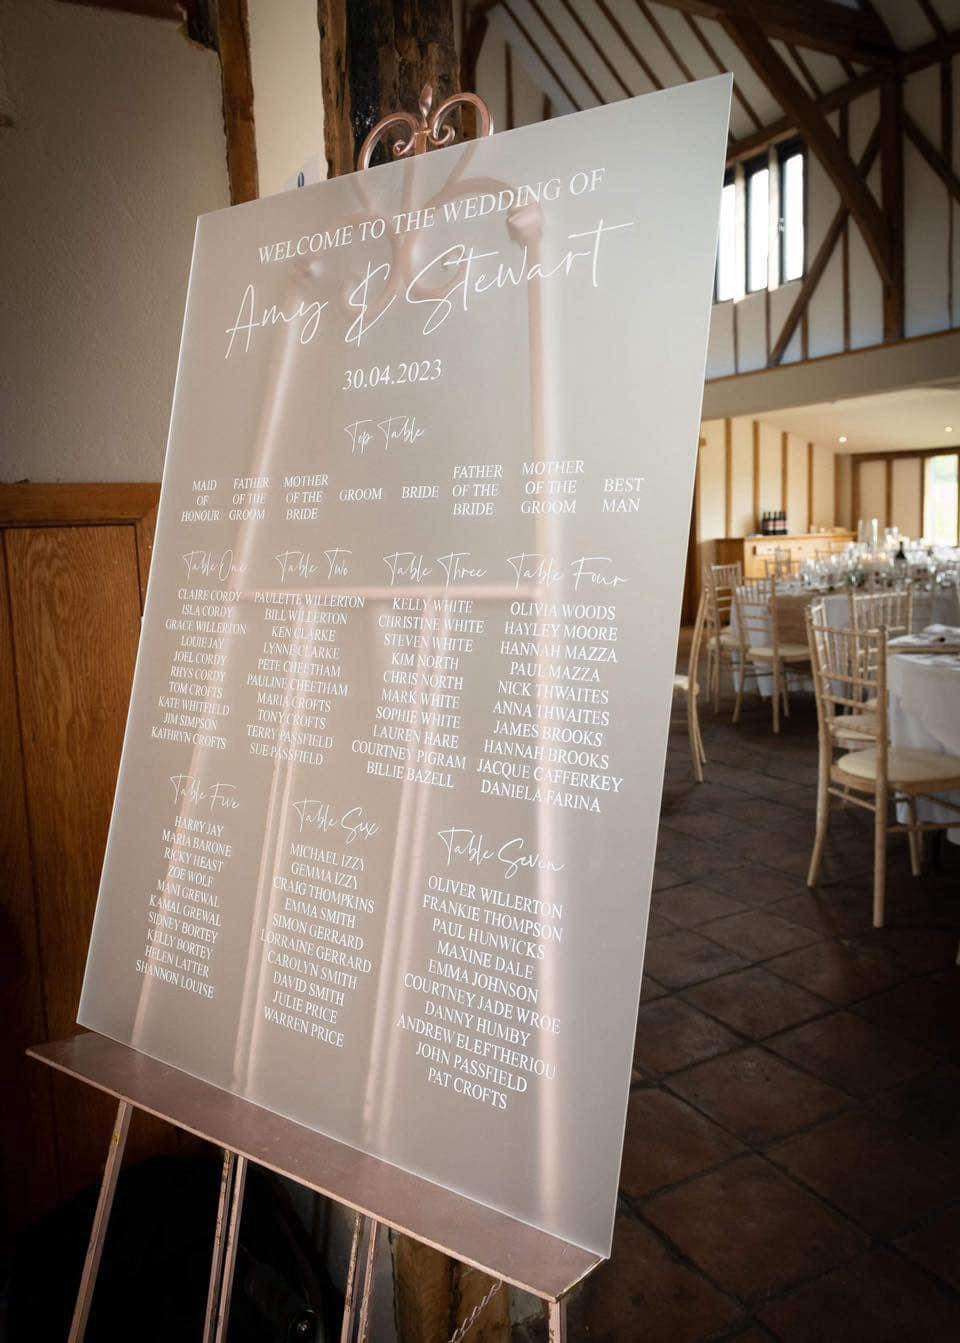 WELCOME TO THE WEDDING OF
Amy & Stewart
30.04.2023
Top Table
MAID OF HONOUR
FATHER OF THE GROOM
MOTHER OF THE BRIDE
GROOM
BRIDE
FATHER OF THE BRIDE
MOTHER OF THE GROOM
BEST MAN
Table One
CLAIRE CORDY
ISLA CORDY
GRACE WILLERTON
LOUIE JAY
JOEL CORDY
RHYS CORDY
TOM CROFTS
KATE WHITFIELD
JIM SIMPSON
KATHRYN CROFTS
Table Two
PAULETTE WILLERTON
BILL WILLERTON
KEN CLARKE
LYNNE CLARKE
PETE CHEETHAM
PAULINE CHEETHAM
MARIA CROFTS
TONY CROFTS
TERRY PASSFIELD
SUE PASSFIELD
Table Three
KELLY WHITE
CHRISTINE WHITE
STEVEN WHITE
KIM NORTH
CHRIS NORTH
MARK WHITE
SOPHIE WHITE
LAUREN HARE
COURTNEY PIGRAM
BILLIE BAZELL
Table Four
OLIVIA WOODS
HAYLEY MOORE
HANNAH MAZZA
PAUL MAZZA
NICK THWAITES
ANNA THWAITES
JAMES BROOKS
HANNAH BROOKS
JACQUE CAFFERKEY
DANIELA FARINA
Table Five
HARRY JAY
MARIA BARONE
RICKY HEAST
ZOE WOLF
MANI GREWAL
KAMAL GREWAL
SIDNEY BORTEY
KELLY BORTEY
HELEN LATTER
SHANNON LOUISE
Table Six
MICHAEL IZZY
GEMMA IZZY
CRAIG THOMPKINS
EMMA SMITH
SIMON GERRARD
LORRAINE GERRARD
CAROLYN SMITH
DAVID SMITH
JULIE PRICE
WARREN PRICE
Table Seven
OLIVER WILLERTON
FRANKIE THOMPSON
PAUL HUNWICKS
MAXINE DALE
EMMA JOHNSON
COURTNEY JADE WROE
DANNY HUMBY
ANDREW ELEFTHERIOU
JOHN PASSFIELD
PAT CROFTS